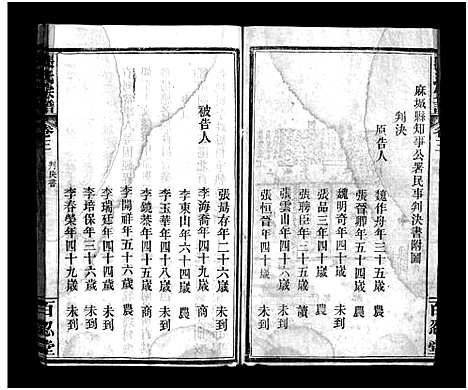 麻城縣知事公署民事判決書附圖
判決
原告人
魏作舟年三十五歲 農
魏明奇年四十歲
張晉卿年五十歲 農
張品三年四十歲
張聘臣年三十歲 讀
張雲山年四十六歲 未到
張恒首年四十歲
張爲存年二十六歲 未到
被告人
李海喬年四十九歲 商
李東山年六十四歲 農
李玉華年四十八歲 未到
李鏡棻年四十五歲 商
李開祥年五十六歲 農
李瑞廷年四十四歲 未到
李培保年三十六歲 未到
李春榮年四十九歲 未到
卷三
判決書
百忍堂